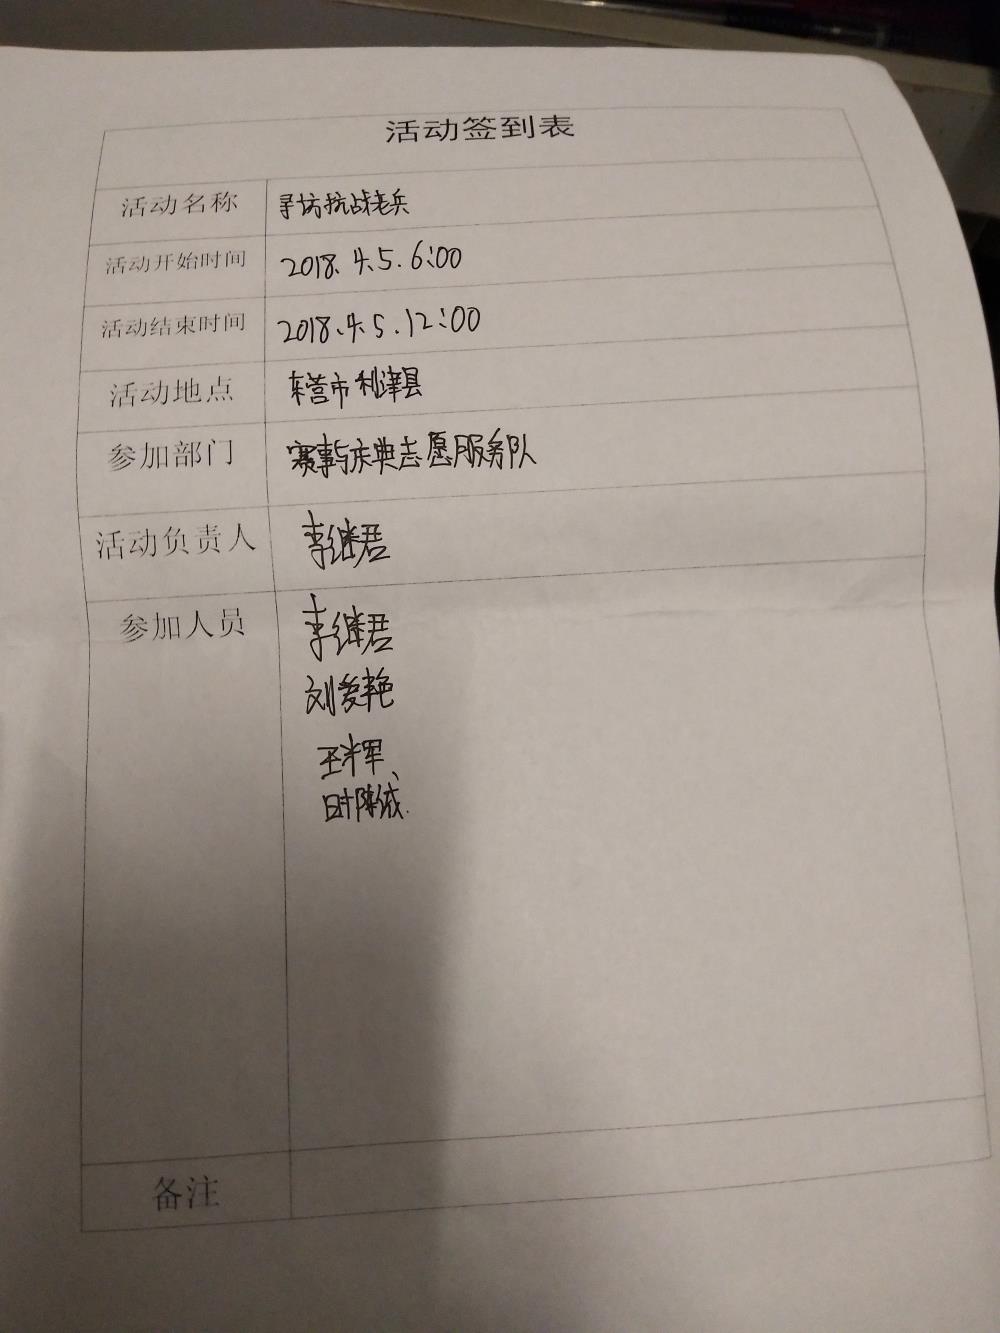 活动签到表
活动名称 寻访抗战老兵
活动开始时间 2018.4.5.6:00
活动结束时间 2018.4.5.12:00
活动地点 东营市利津县
参加部门 赛事与庆典志愿服务队
活动负责人 李继君
参加人员 李继君
刘爱艳
王
备注